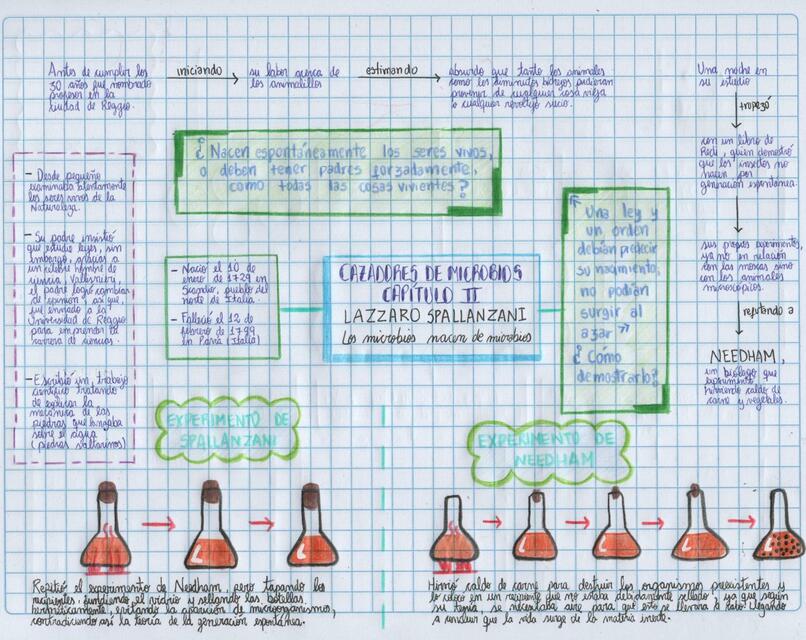 Antes de cumplir los
30 años fue nombrado
profesor en la
ciudad de Reggio.
iniciando
su labor acerca de
los animalillos
estimando
absurdo que tanto los animales
como los diminutos bichejos pudieran
provenir de cualquier cosa vieja
o cualquier revoltijo sucio.
Una noche en
su estudio
tropezó
con un libro de
Redi, quien demostró
que los insectos no
nacen por
generación espontánea.
sus propios experimentos,
ya no en relación
con las moscas sino
con los animales
microscópicos.
refutando a
NEEDHAM,
un biólogo que
experimentó
hirviendo caldo de
carne y vegetales.
¿Nacen espontáneamente los seres vivos,
o deben tener padres forzadamente,
como todas las cosas vivientes?
- Desde pequeño
examinaba atentamente
los seres vivos de la
Naturaleza.
- Su padre insistió
que estudie leyes, sin
embargo, gracias a
un célebre hombre de
ciencia, Vallisnieri,
el padre logró cambiar
de opinión y así que,
fue enviado a la
Universidad de Reggio
para emprender la
carrera de ciencias.
- Escribió un trabajo
científico tratando
de explicar la
mecánica de las
piedras que lanzaba
sobre el agua
(piedras saltarinas)
- Nació el 10 de
enero de 1729 en
Scandio, pueblo del
norte de Italia.
- Falleció el 12 de
febrero de 1799
en Pavia (Italia)
CAZADORES DE MICROBIOS
CAPÍTULO II
LAZZARO SPALLANZANI
Los microbios nacen de microbios
"Una ley y
un orden
debían predecir
su nacimiento,
no podían
surgir al
azar"
¿Cómo
demostrarlo?
EXPERIMENTO DE
SPALLANZANI
EXPERIMENTO DE
NEEDHAM
Repitió el experimento de Needham, pero tapando los
recipientes, fundiendo el vidrio y sellando las botellas
herméticamente, evitando la aparición de microorganismos,
contradiciendo así la teoría de la generación espontánea.
Hirvió caldo de carne para destruir los organismos preexistentes y
lo colocó en un recipiente que no estaba debidamente sellado, ya que según
su teoría, se necesitaba aire para que esto se llevara a cabo. Llegando
a concluir que la vida surge de la materia inerte.